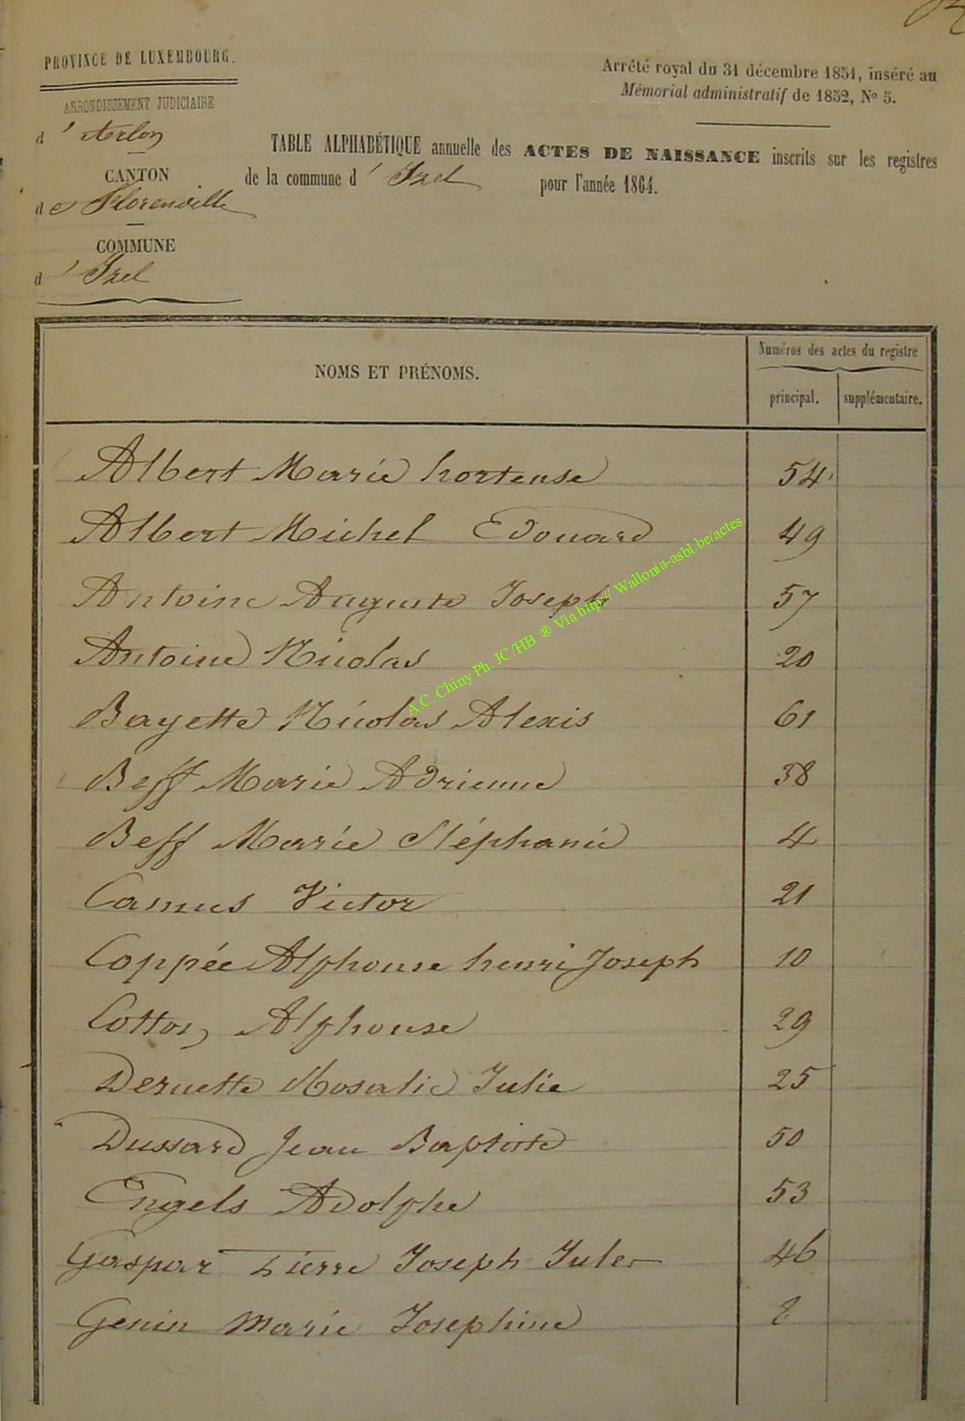 PROVINCE DE LUXEMBOURG.
ARRONDISSEMENT JUDICIAIRE
d'Arlon
CANTON
de Florenville
COMMUNE
d'Izel
Arrêté royal du 31 décembre 1851, inséré au
Mémorial administratif de 1852, Nº 5.
TABLE ALPHABÉTIQUE annuelle des ACTES DE NAISSANCE inscrits sur les registres
de la commune d'Izel pour l'année 1864.
NOMS ET PRÉNOMS.
Numéros des actes du registre
principal. supplémentaire.
Albert Marie hortense 54
Albert Michel Edouard 49
Antoine Auguste Joseph 57
Antoine Nicolas 20
Bayette Nicolas Alexis 61
Beff Marie Adrienne 38
Beff Marie Stéphanie 4
Camus Victor 21
Coppée Alphonse henri Joseph 10
Cotton Alphonse 29
Deruette Rosalie Julie 25
Dussard Jean Baptiste 50
Engels Adolphe 53
Gaspar Pierre Joseph Jules 46
Genin Marie Josephine
A.C. Chiny Ph. JC /HB ® Via http:// Wallonia-asbl.be/actes